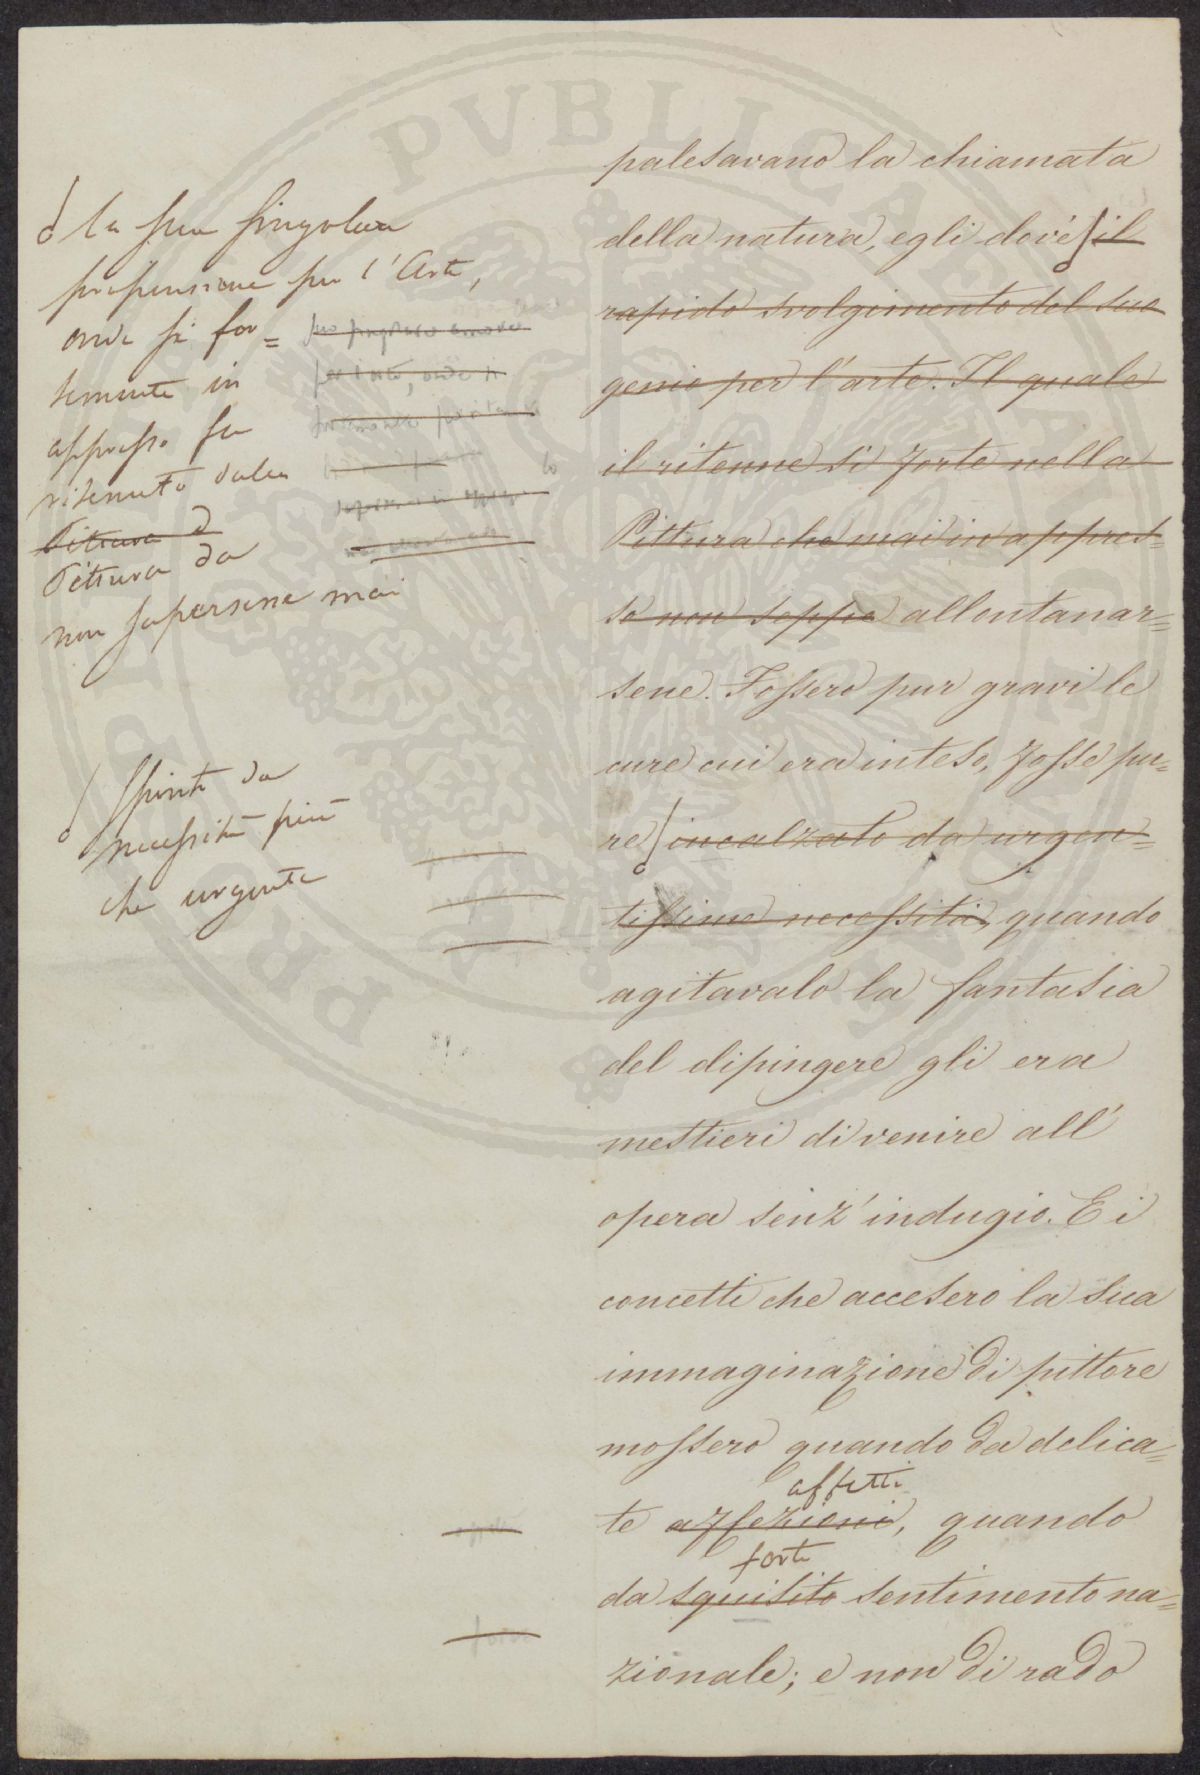 palesavano la chiamata
della natura, egli dové il
rapido svolgimento del suo
genio per l'arte. Il quale
il ritenne sì forte nella
Pittura che mai in appres=
so non seppe allontanar=
sene. Fossero pur gravi le
cure cui era inteso, fosse pu=
re incalzato da urgen=
tissime necessità, quando
agitavalo la fantasia
del dipingere gli era
mestieri di venire all'
opera senz'indugio. E i
concetti che accesero la sua
immaginazione di pittore
mossero quando da delica=
affetti
te affezioni, quando
forte
da squisito sentimento na=
zionale; e non di rado
la sua singolare
propensione per l'Arte,
onde sì for=
temente in
appresso fu
ritenuto dalla
Pittura d
Pittura da
non sapersene mai
spinto da
necessità più
che urgente
per l'arte, onde sì
fortemente
lo
forte
PVBLICAE